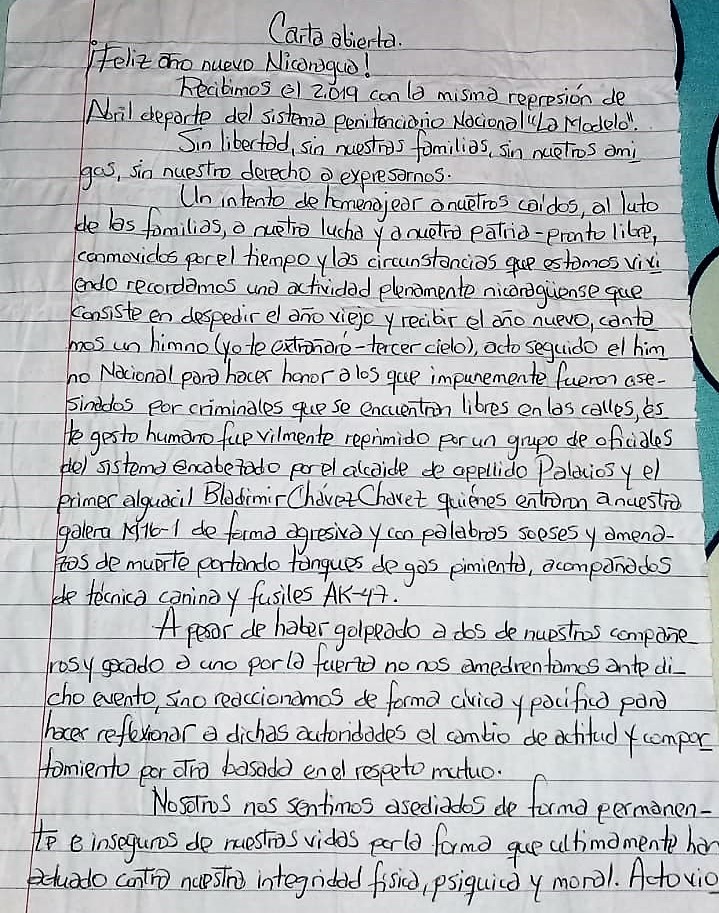 Carta abierta.
¡Feliz año nuevo Nicaragua!
Recibimos el 2,019 con la misma represión de
Abril departe del sistema penitenciario Nacional "La Modelo".
Sin libertad, sin nuestras familias, sin nuetros ami
gos, sin nuestro derecho a expresarnos.
Un intento de homenajear a nuetros caídos, al luto
de las familias, a nuetra lucha y a nuetra patria-pronto libre,
conmovidos por el tiempo y las circunstancias que estamos vivi
endo recordamos una actividad plenamente nicaragüense que
consiste en despedir el año viejo y recibir el año nuevo, canta
mos un himno (yo te extrañaré-tercer cielo), acto seguido el him
no Nacional para hacer honor a los que impunemente fueron ase-
sinados por criminales que se encuentran libres en las calles, es
te gesto humano fue vilmente reprimido por un grupo de oficiales
del sistema encabezado por el alcaide de apellido Palacios y el
primer alguacil Bladimir Chávez Chavez quiénes entraron a nuestra
galera N°16-1 de forma agresiva y con palabras soeses y amena-
zas de muerte portando tanques de gas pimienta, acompañados
de técnica canina y fusiles AK-47.
A pesar de haber golpeado a dos de nuestros compañe
ros y gaseado a uno por la fuerza no nos amedrentamos ante di-
cho evento, sino reaccionamos de forma cívica y pacífica para
hacer reflexionar a dichas autoridades el cambio de actitud y compor
tamiento por otra basada en el respeto mutuo.
Nosotros nos sentimos asediados de forma permanen-
te e inseguros de nuestras vidas por la forma que ultimamente han
actuado contra nuestra integridad física, psiquica y moral. Acto vio